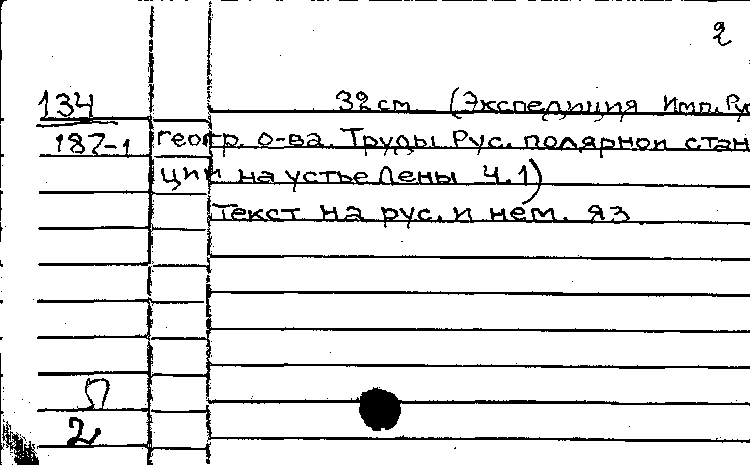 2
134 32 см (Экспедиция Имп. Ру
187-1 геогр. о-ва. Труды Рус. полярной стан
ции на устье Лены Ч.1)
Текст на рус. и нем. яз
Л
2